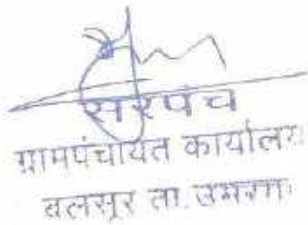 सरपंच
ग्रामपंचायत कार्यालय
बलसूर ता. उमरगा